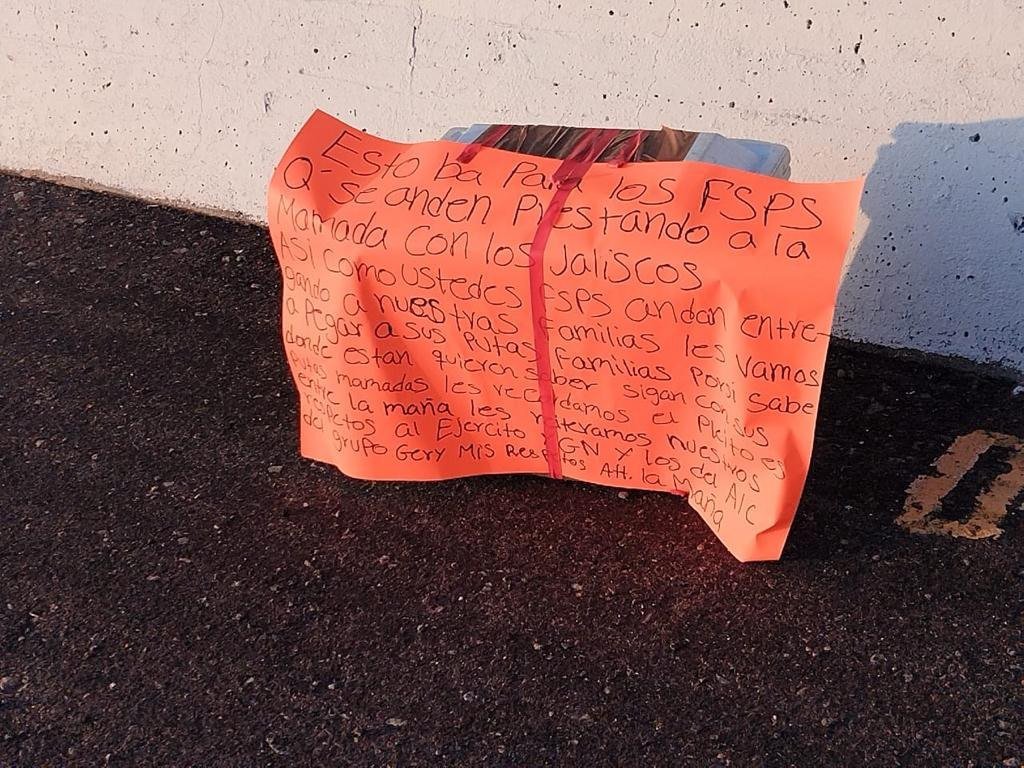 Esto ba Para los FSPS
Q-se anden Prestando a la
Mamada con los Jaliscos
ASi como ustedes FSPS andan entre-
gando a nuestras Familias les Vamos
a Pegar a sus Putas Familias Porsi sabe
donde estan quieren saber sigan con sus
Putas mamadas les recordamos el Pleito es
entre la maña les reiteramos nuestros
respetos al Ejercito YGN y los del AIC
del grupo Gery Mis Respetos Att. la Maña